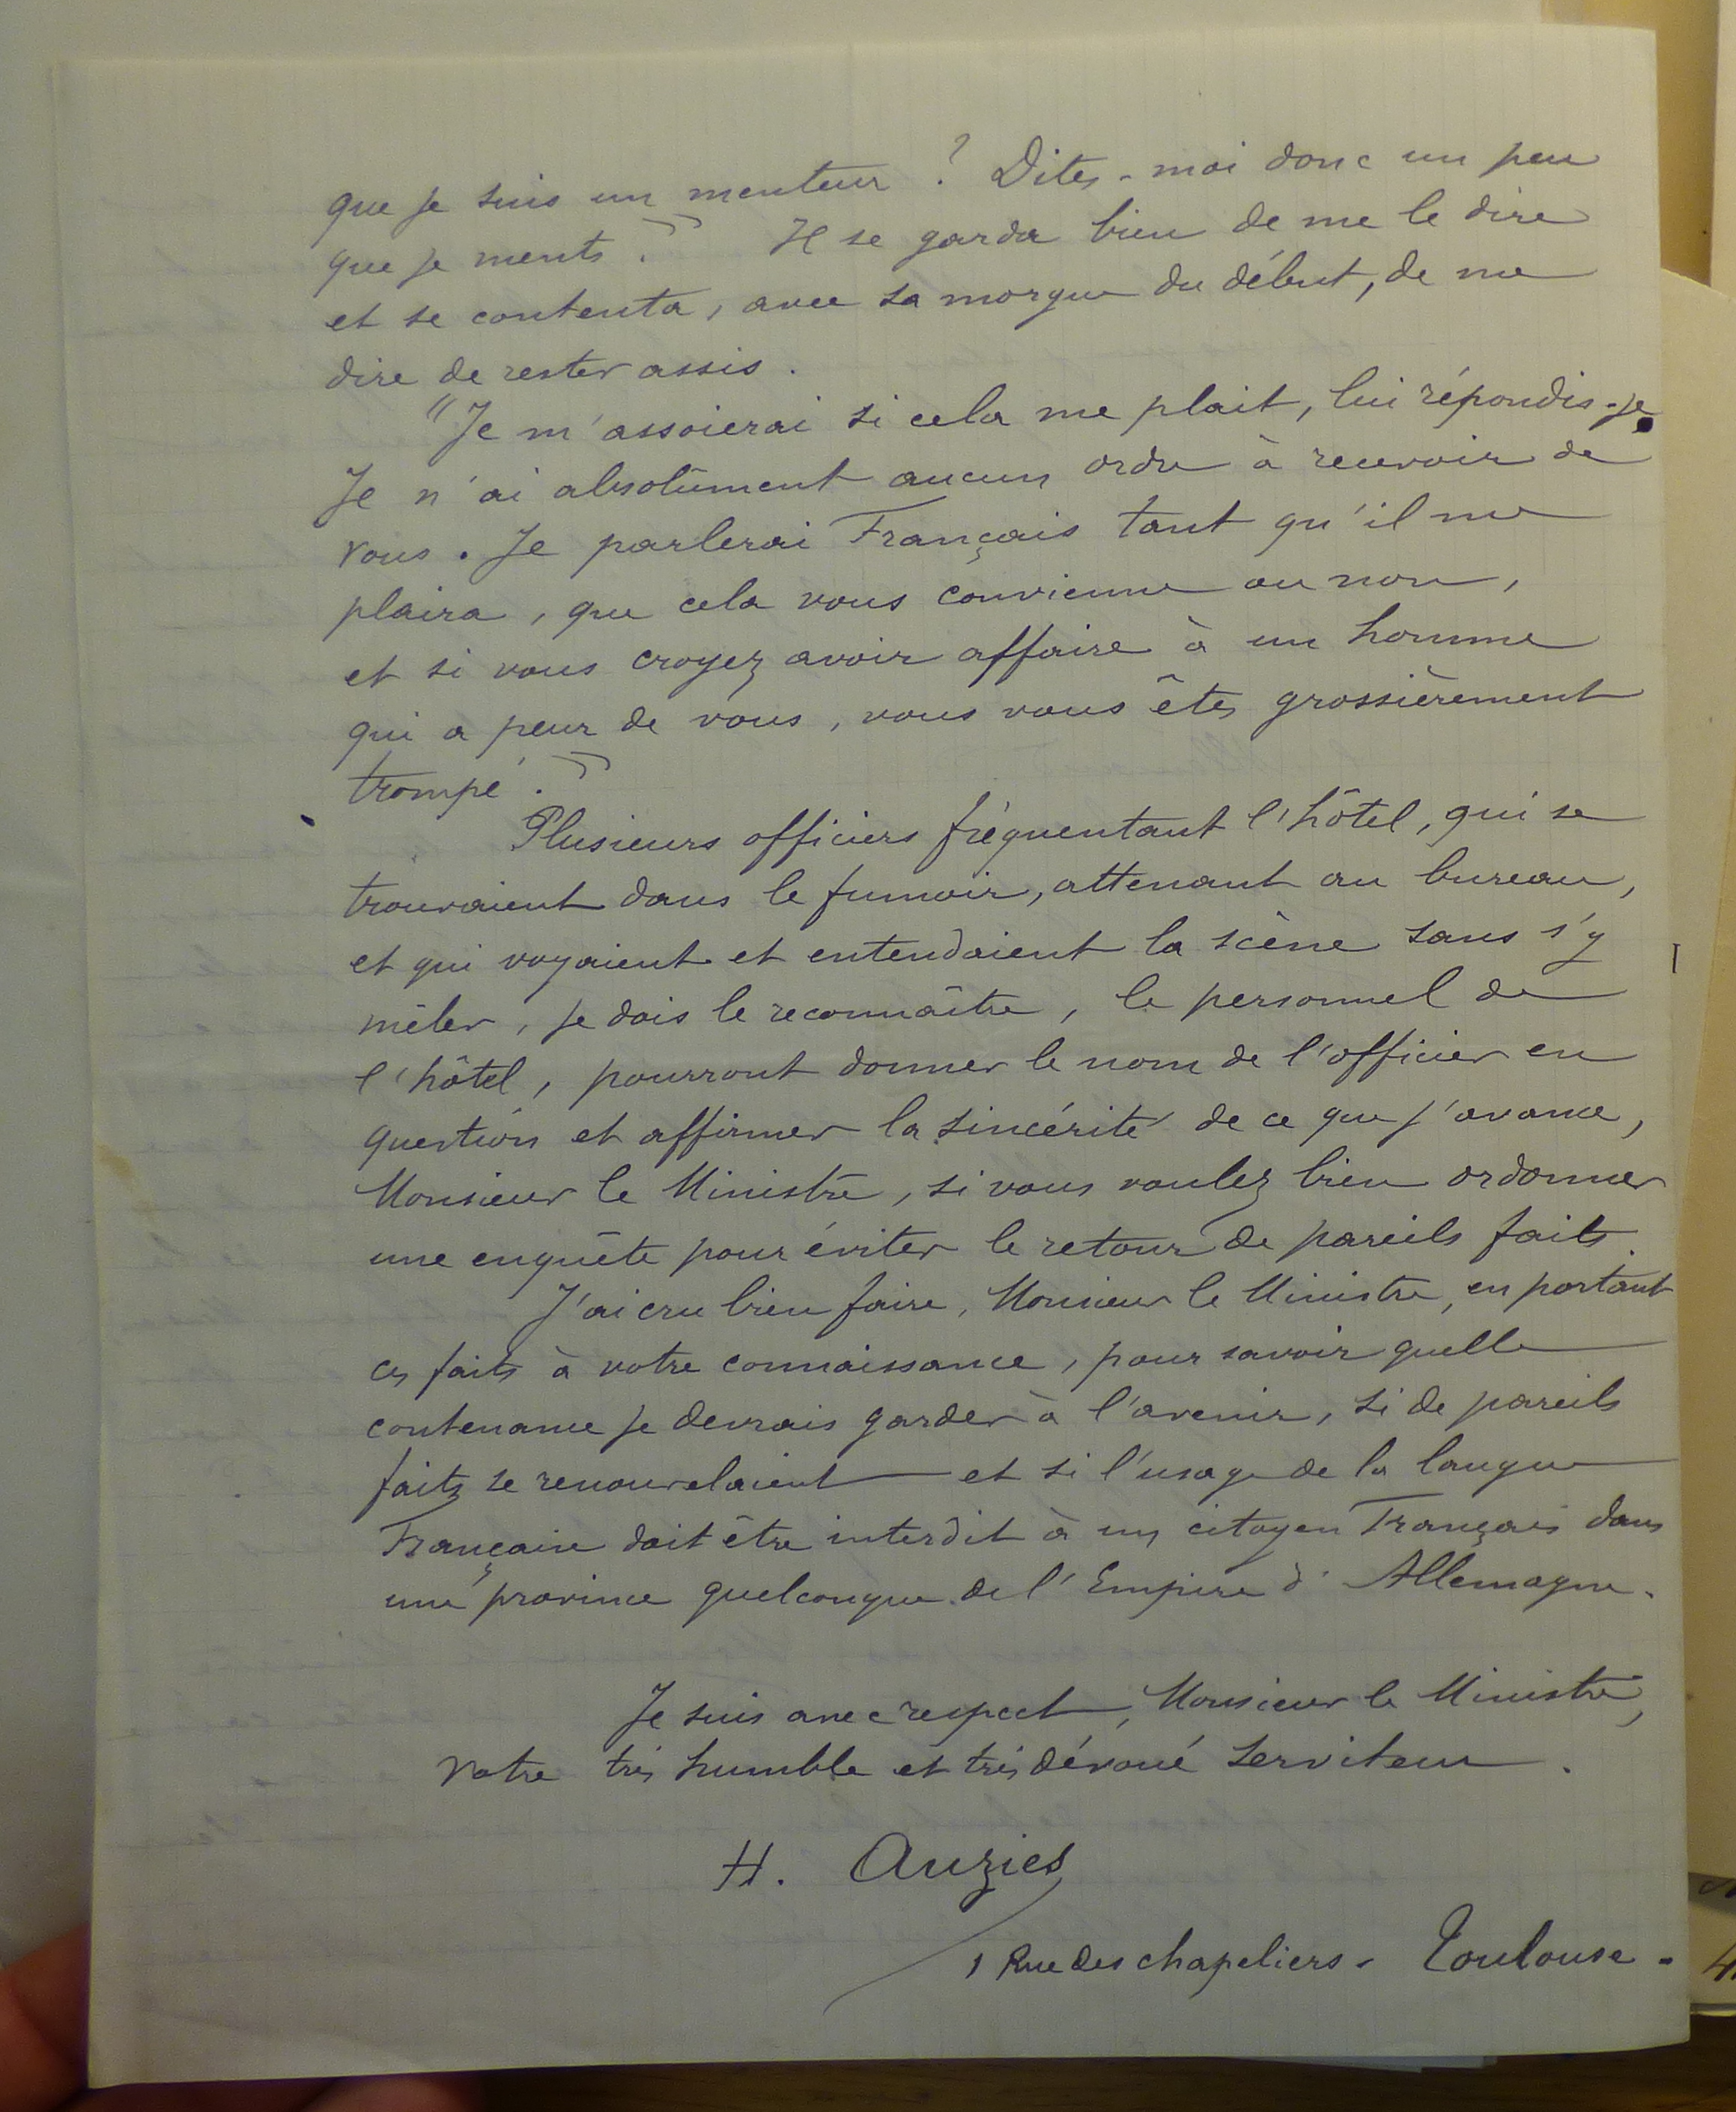 que je suis un menteur ? Dites-moi donc un peu
que je ments. " Il se garda bien de me le dire
et se contenta, avec sa morgue du début, de me
dire de rester assis.
"Je m'assoierai si cela me plait, lui répondis-je.
Je n'ai absolûment aucun ordre à recevoir de
vous. Je parlerai Français tant qu'il me
plaira, que cela vous convienne ou non,
et si vous croyez avoir affaire à un homme
qui a peur de vous, vous vous êtes grossièrement
trompé. "
Plusieurs officiers fréquentant l'hôtel, qui se
trouvaient dans le fumoir, attenant au bureau,
et qui voyaient et entendaient la scène sans s'y
mêler, je dois le reconnaître, le personnel de
l'hôtel, pourront donner le nom de l'officier en
question et affirmer la sincérité de ce que j'avance,
Monsieur le Ministre, si vous voulez bien ordonner
une enquête pour éviter le retour de pareils faits.
J'ai cru bien faire, Monsieur le Ministre, en portant
ces faits à votre connaissance, pour savoir quelle
contenance je devrais garder à l'avenir, si de pareils
faits se renouvelaient et si l'usage de la langue
Française doit être interdit à un citoyen Français dans
une province quelconque de l'Empire d'Allemagne.
Je suis avec respect, Monsieur le Ministre,
votre très humble et très dévoué serviteur.
H. Auziès
1 Rue des chapeliers - Toulouse -